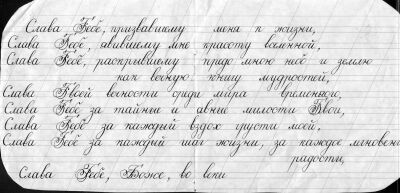 Слава Тебе, призвавшему меня к жизни,
Слава Тебе, явившему мне красоту вселенной,
Слава Тебе, раскрывшему предо мною небо и землю
как вечную книгу мудрости,
Слава Твоей вечности среди мира временного,
Слава Тебе за тайные и явные милости Твои,
Слава Тебе за каждый вздох грусти моей,
Слава Тебе за каждый шаг жизни, за каждое мгновение
радости,
Слава Тебе, Боже, во веки